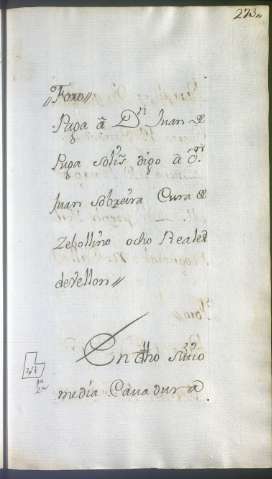 273
"Foro"
Paga â Dn Juan de
Puga solis digo â Dn
Juan sobreira Cura de
Zebollino ocho Reales
de vellon"
En dho sitio
media Cavadura